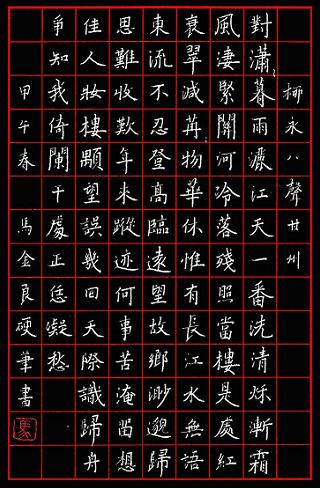 柳永八聲甘州
對瀟〻暮雨灑江天一番洗清秌漸霜
風淒緊關河冷落殘照當樓是處紅
衰翠減苒〻物華休惟有長江水無語
東流不忍登高臨遠望故鄉渺邈歸
思難收歎年來蹤迹何事苦淹留想
佳人妝樓顒望誤幾回天際識歸舟
爭知我倚闌干處正恁凝愁
甲午春馬金良硬筆書